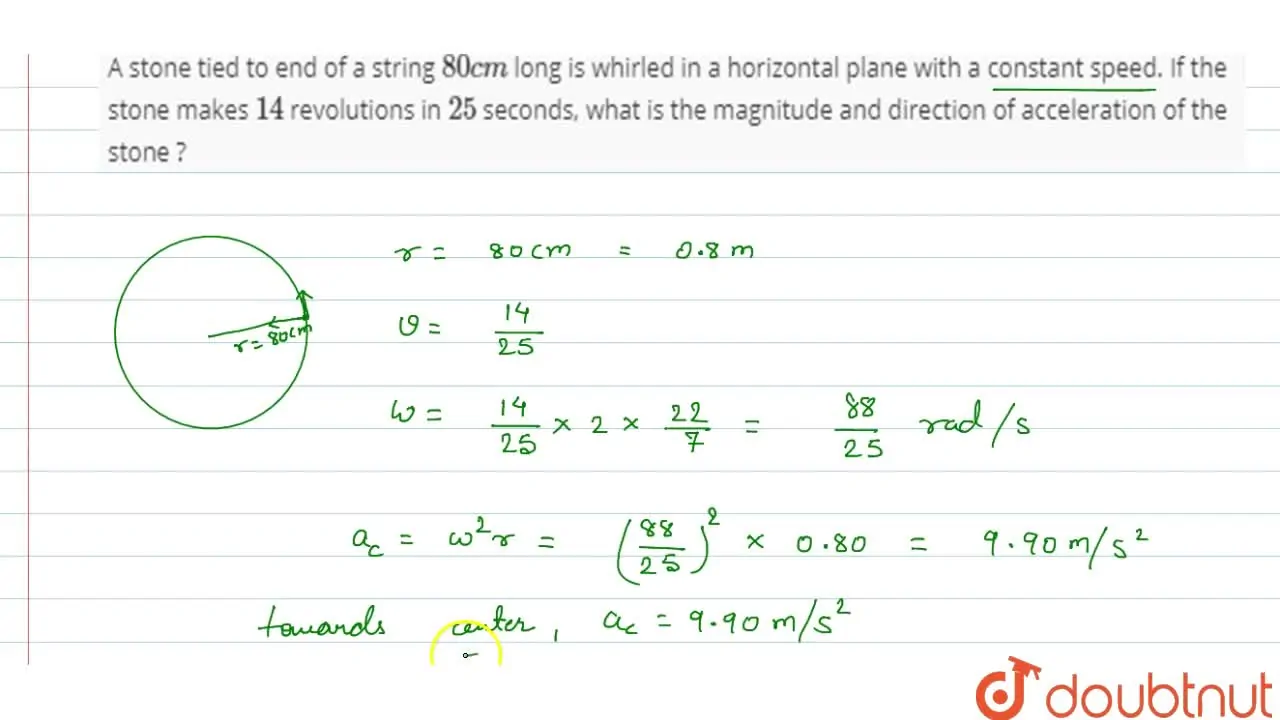 A stone tied to end of a string 80cm long is whirled in a horizontal plane with a constant speed. If the
stone makes 14 revolutions in 25 seconds, what is the magnitude and direction of acceleration of the
stone ?
r = 80 cm = 0.8 m
r = 80cm
υ = 14/25
ω = 14/25 × 2 × 22/7 = 88/25 rad/s
a_c = ω²r = (88/25)² × 0.80 = 9.90 m/s²
towards center, a_c = 9.90 m/s²
doubtnut